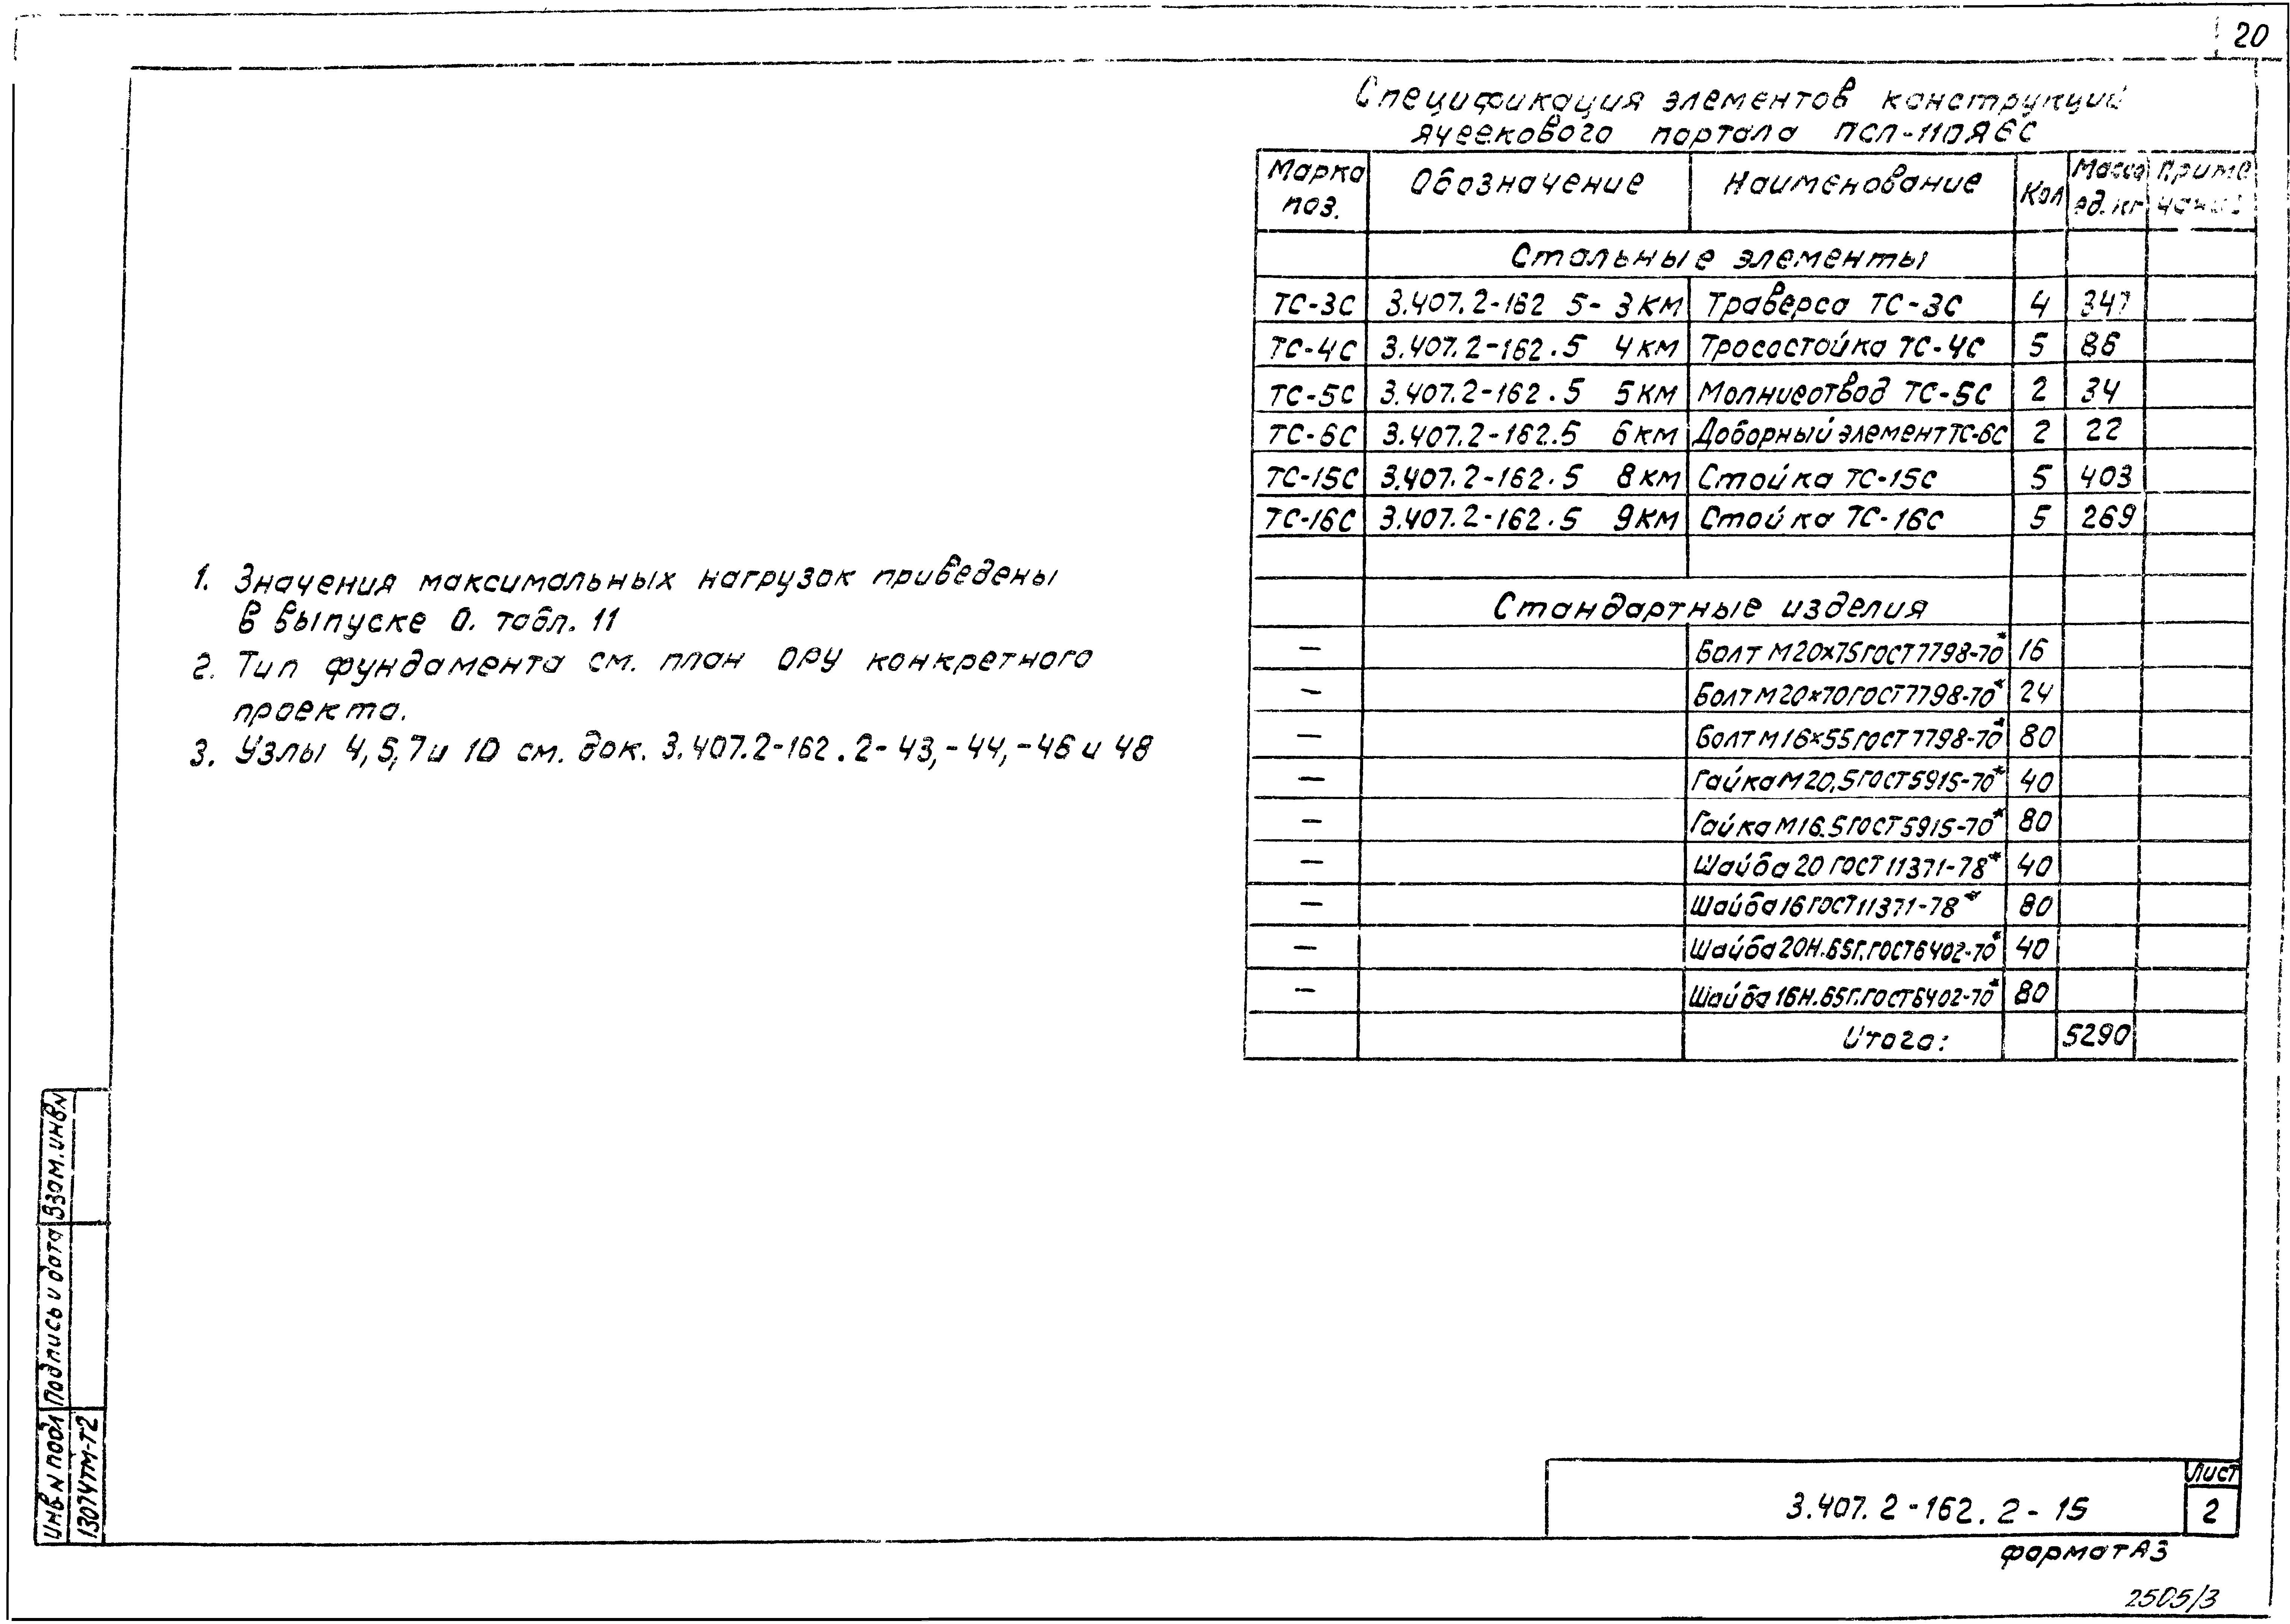 20
Спецификация элементов конструкций
ячеекового портала ПСЛ-110Я6С
Марка поз. Обозначение Наименование Кол Масса ед. кг Примечание
Стальные элементы
ТС-3С 3.407.2-162 5- 3КМ Траверса ТС-3С 4 347
ТС-4С 3.407.2-162.5 4КМ Тросостойка ТС-4С 5 86
ТС-5С 3.407.2-162.5 5КМ Молниеотвод ТС-5С 2 34
ТС-6С 3.407.2-162.5 6КМ Доборный элемент ТС-6С 2 22
ТС-15С 3.407.2-162.5 8КМ Стойка ТС-15С 5 403
ТС-16С 3.407.2-162.5 9КМ Стойка ТС-16С 5 269
Стандартные изделия
— Болт М20×75 ГОСТ 7798-70* 16
— Болт М20×70 ГОСТ 7798-70* 24
— Болт М16×55 ГОСТ 7798-70* 80
— Гайка М20,5 ГОСТ 5915-70* 40
— Гайка М16.5 ГОСТ 5915-70* 80
— Шайба 20 ГОСТ 11371-78* 40
— Шайба 16 ГОСТ 11371-78* 80
— Шайба 20Н.65Г. ГОСТ 6402-70* 40
— Шайба 16Н.65Г. ГОСТ 6402-70* 80
Итого: 5290
1. Значения максимальных нагрузок приведены
в выпуске 0. табл. 11
2. Тип фундамента см. план ОРУ конкретного
проекта.
3. Узлы 4, 5, 7 и 10 см. док. 3.407.2-162.2-43,-44,-46 и 48
Взам. инв N
Подпись и дата
Инв. N подл
13074ТМ-Т2
3.407.2-162.2-15
Лист
2
Формат А3
2505/3